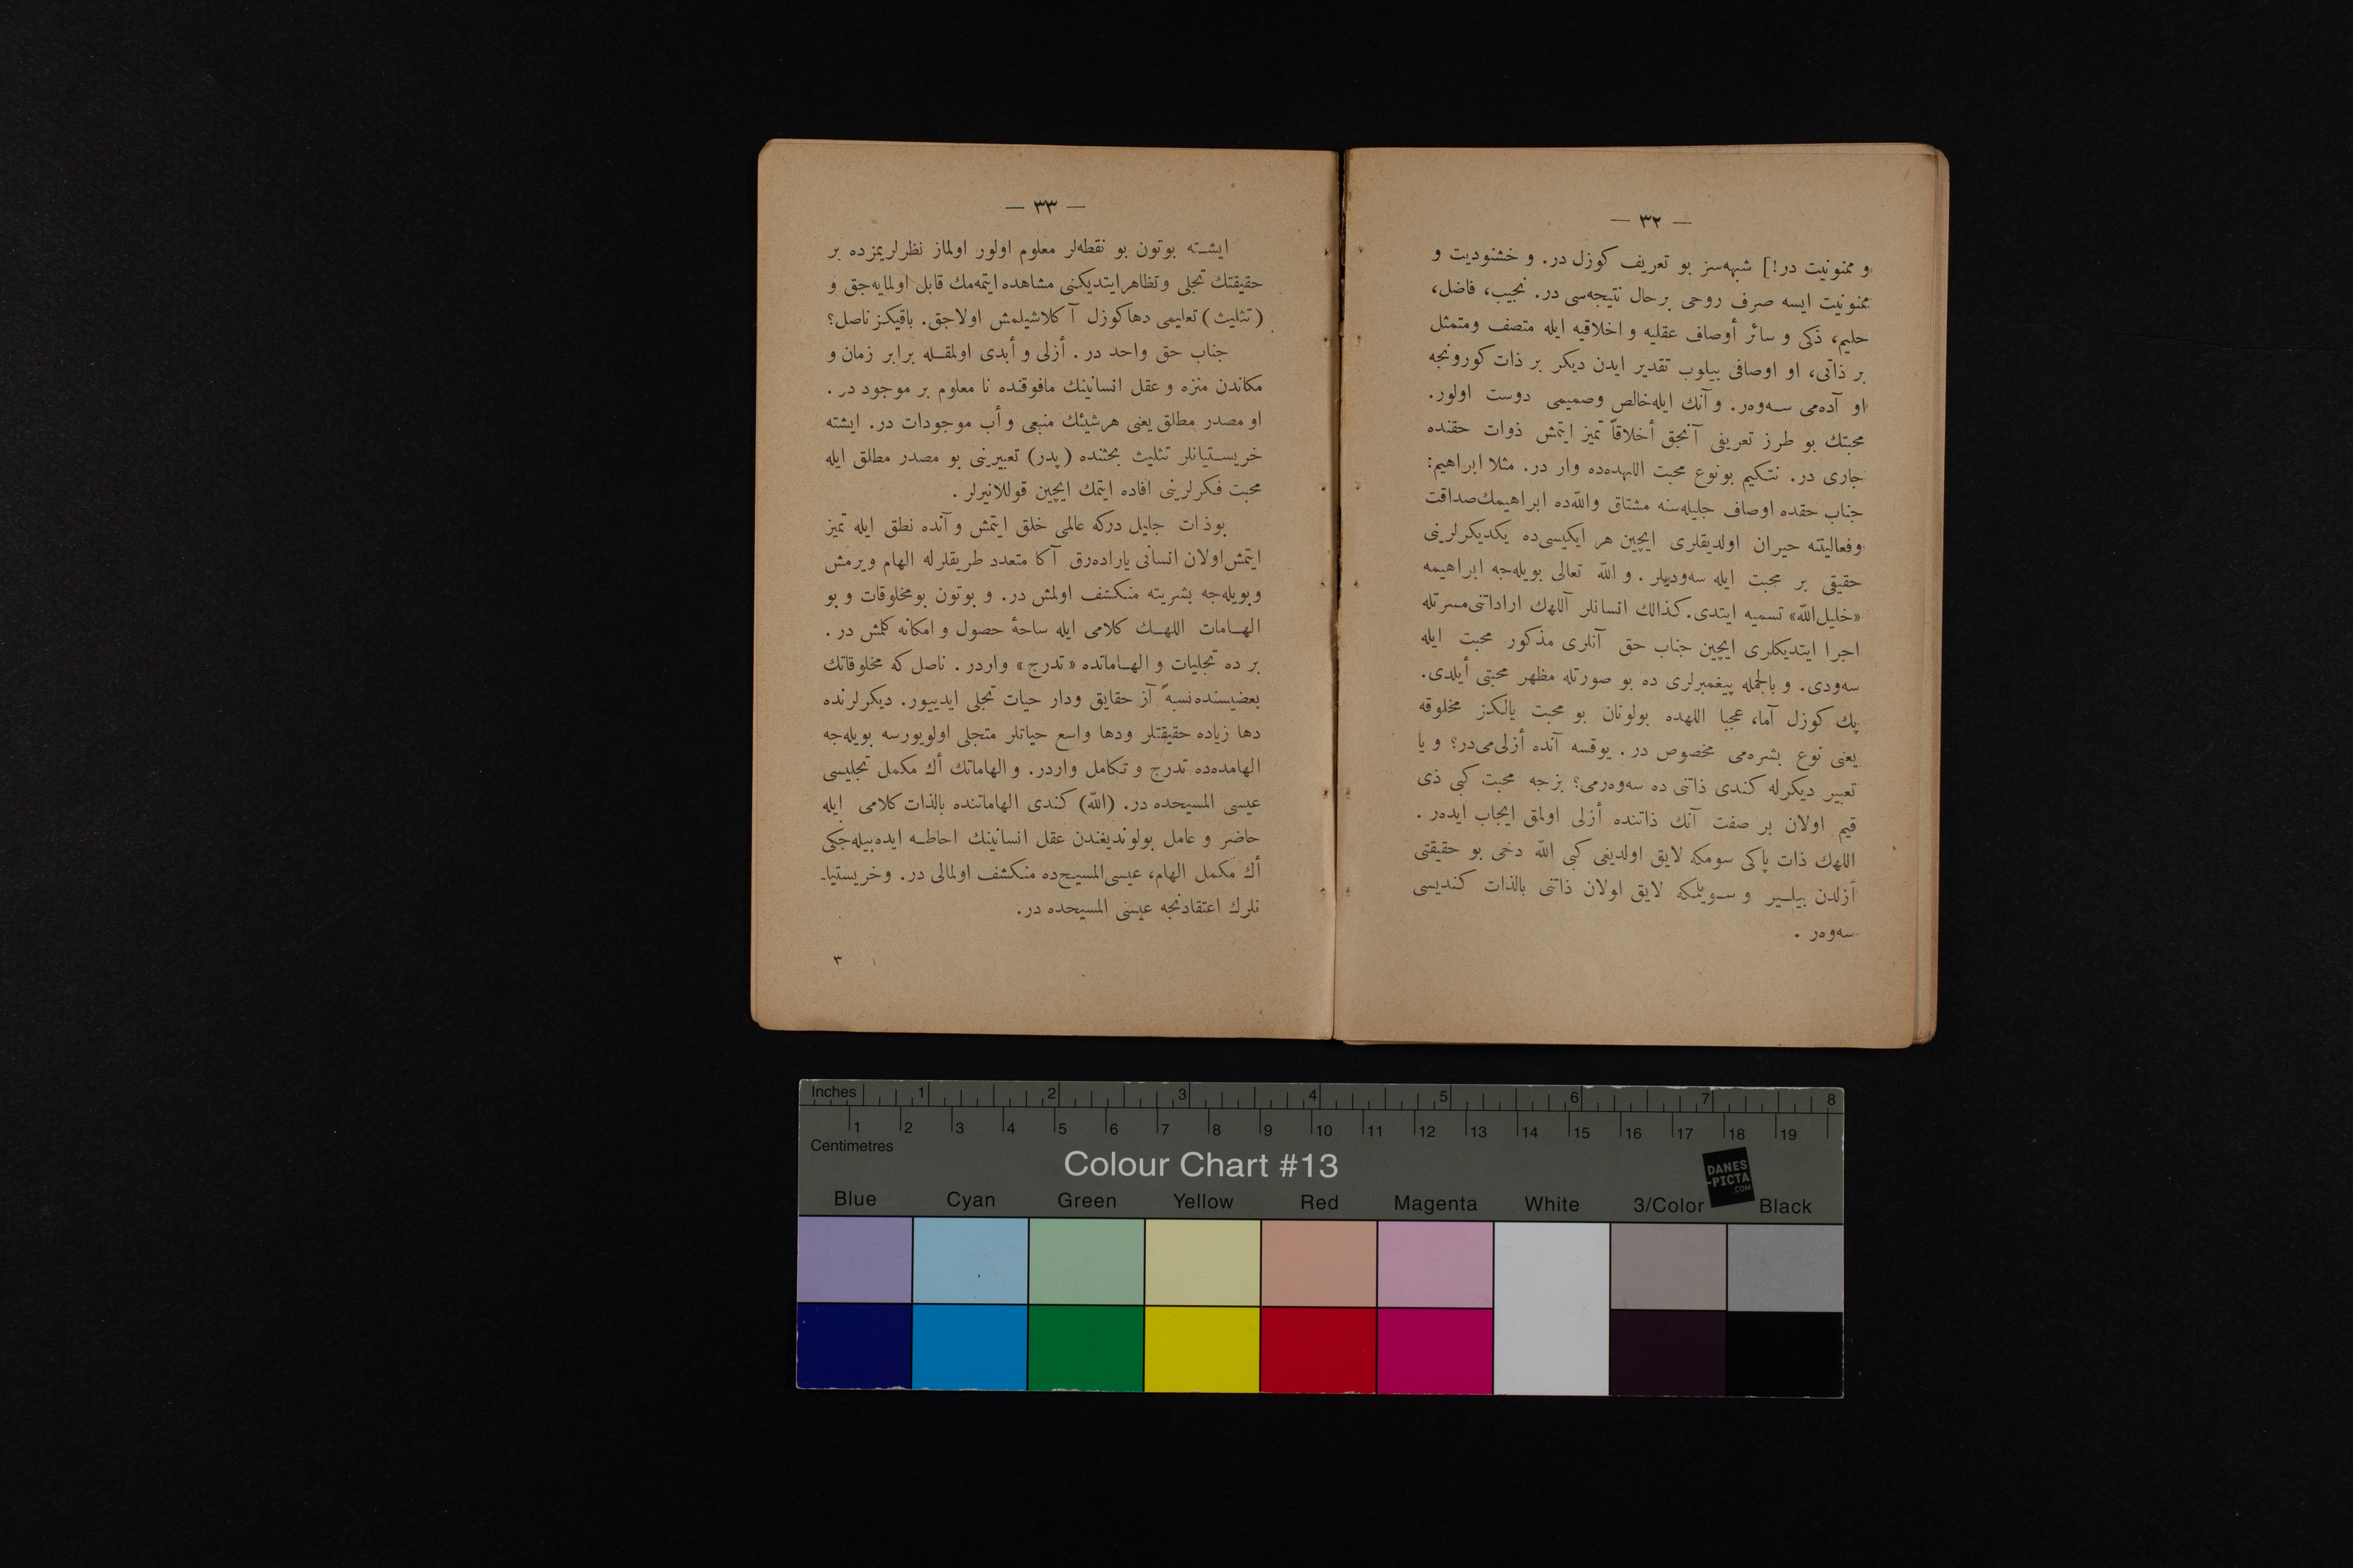 — ٣٢ —
و ممنونیت در!] شبهه‌سز بو تعریف کوزل در. و خشنودیت و
ممنونیت ایسه صرف روحی برحال نتیجه‌سی در. نجیب، فاضل،
حلیم، ذکی و سائر أوصاف عقلیه و اخلاقیه ایله متصف ومتمثل
بر ذاتی، او اوصافی بیلوب تقدیر ایدن دیکر بر ذات کورونجه
او آده‌می سه‌وه‌ر. و آنك ایله‌خالص وصمیمی دوست اولور.
محبتك بو طرز تعریفی آنجق أخلاقاً تمیز ایتمش ذوات حقنده
جاری در. نتکیم بونوع محبت اللهده‌ده وار در. مثلا ابراهیم:
جناب حقده اوصاف جلیله‌سنه مشتاق واللّه‌ده ابراهیمك‌صداقت
وفعالیتنه حیران اولدیقلری ایچین هر ایکیسی‌ده یکدیکرلرینی
حقیقی بر محبت ایله سه‌ودیلر. و اللّه تعالی بویله‌جه ابراهیمه
«خلیل‌اللّه» تسمیه ایتدی. کذالك انسانلر آللهك اراداتنی‌مسرتله
اجرا ایتدیکلری ایچین جناب حق آنلری مذکور محبت ایله
سه‌ودی. و بالجمله پیغمبرلری ده بو صورتله مظهر محبتی أیلدی.
پك کوزل آما، عجبا اللهده بولونان بو محبت یالکز مخلوقه
یعنی نوع بشره‌می مخصوص در. یوقسه آنده أزلی‌می‌در؟ و یا
تعبیر دیکرله کندی ذاتنی ده سه‌وه‌رمی؟ بزجه محبت کبی ذی
قیم اولان بر صفت آنك ذاتنده أزلی اولمق ایجاب ایده‌ر.
اللهك ذات پاکی سومکه لایق اولدیغی کبی اللّه دخی بو حقیقتی
أزلدن بیلـیر و سـویلمکه لایق اولان ذاتنی بالذات کندیسی
سه‌وه‌ر .
— ٣٣ —
ایشـته بوتون بو نقطه‌لر معلوم اولور اولماز نظرلریمزده بر
حقیقتك تجلی وتظاهرایتدیکنی مشاهده ایتمه‌مك قابل اولمایه‌جق و
(تثلیث) تعلیمی دهاکوزل آکلاشیلمش اولاجق. باقیکز ناصل؟
جناب حق واحد در. أزلی و أبدی اولمقـله برابر زمان و
مکاندن منزه و عقل انسانینك مافوقنده نا معلوم بر موجود در.
او مصدر مطلق یعنی هرشیئك منبعی وأب موجودات در. ایشته
خریسـتیانلر تثلیث بحثنده (پدر) تعبیرینی بو مصدر مطلق ایله
محبت فکرلرینی افاده ایتمك ایچین قوللانیرلر.
بوذات جلیل درکه عالمی خلق ایتمش و آنده نطق ایله تمیز
ایتمش‌اولان انسانی یاراده‌رق آکا متعدد طریقلرله الهام ویرمش
وبویله‌جه بشریته منکشف اولمش در. و بوتون بومخلوقات و بو
الهـامات اللهـك کلامی ایله ساحهٔ حصول و امکانه کلمش در.
بر ده تجلیات و الهـاماتده «تدرج» واردر. ناصل که مخلوقاتك
بعضیسنده‌نسبهً آز حقایق ودار حیات تجلی ایدییور. دیکرلرنده
دها زیاده حقیقتلر ودها واسع حیاتلر متجلی اولویورسه بویله‌جه
الهامده‌ده تدرج و تکامل واردر. و الهاماتك أك مکمل تجلیسی
عیسی المسیحده در. (اللّه) کندی الهاماتنده بالذات کلامی ایله
حاضر و عامل بولوندیغندن عقل انسانینك احاطـه ایده‌بیله‌جکی
أك مکمل الهام، عیسی‌المسیح‌ده منکشف اولمالی در. وخریستیا-
نلرك اعتقادنجه عیسی المسیحده در.
٣
Inches 1 2 3 4 5 6 7 8
1 2 3 4 5 6 7 8 9 10 11 12 13 14 15 16 17 18 19
Centimetres
Colour Chart #13
DANES
-PICTA
.COM
Blue Cyan Green Yellow Red Magenta White 3/Color Black